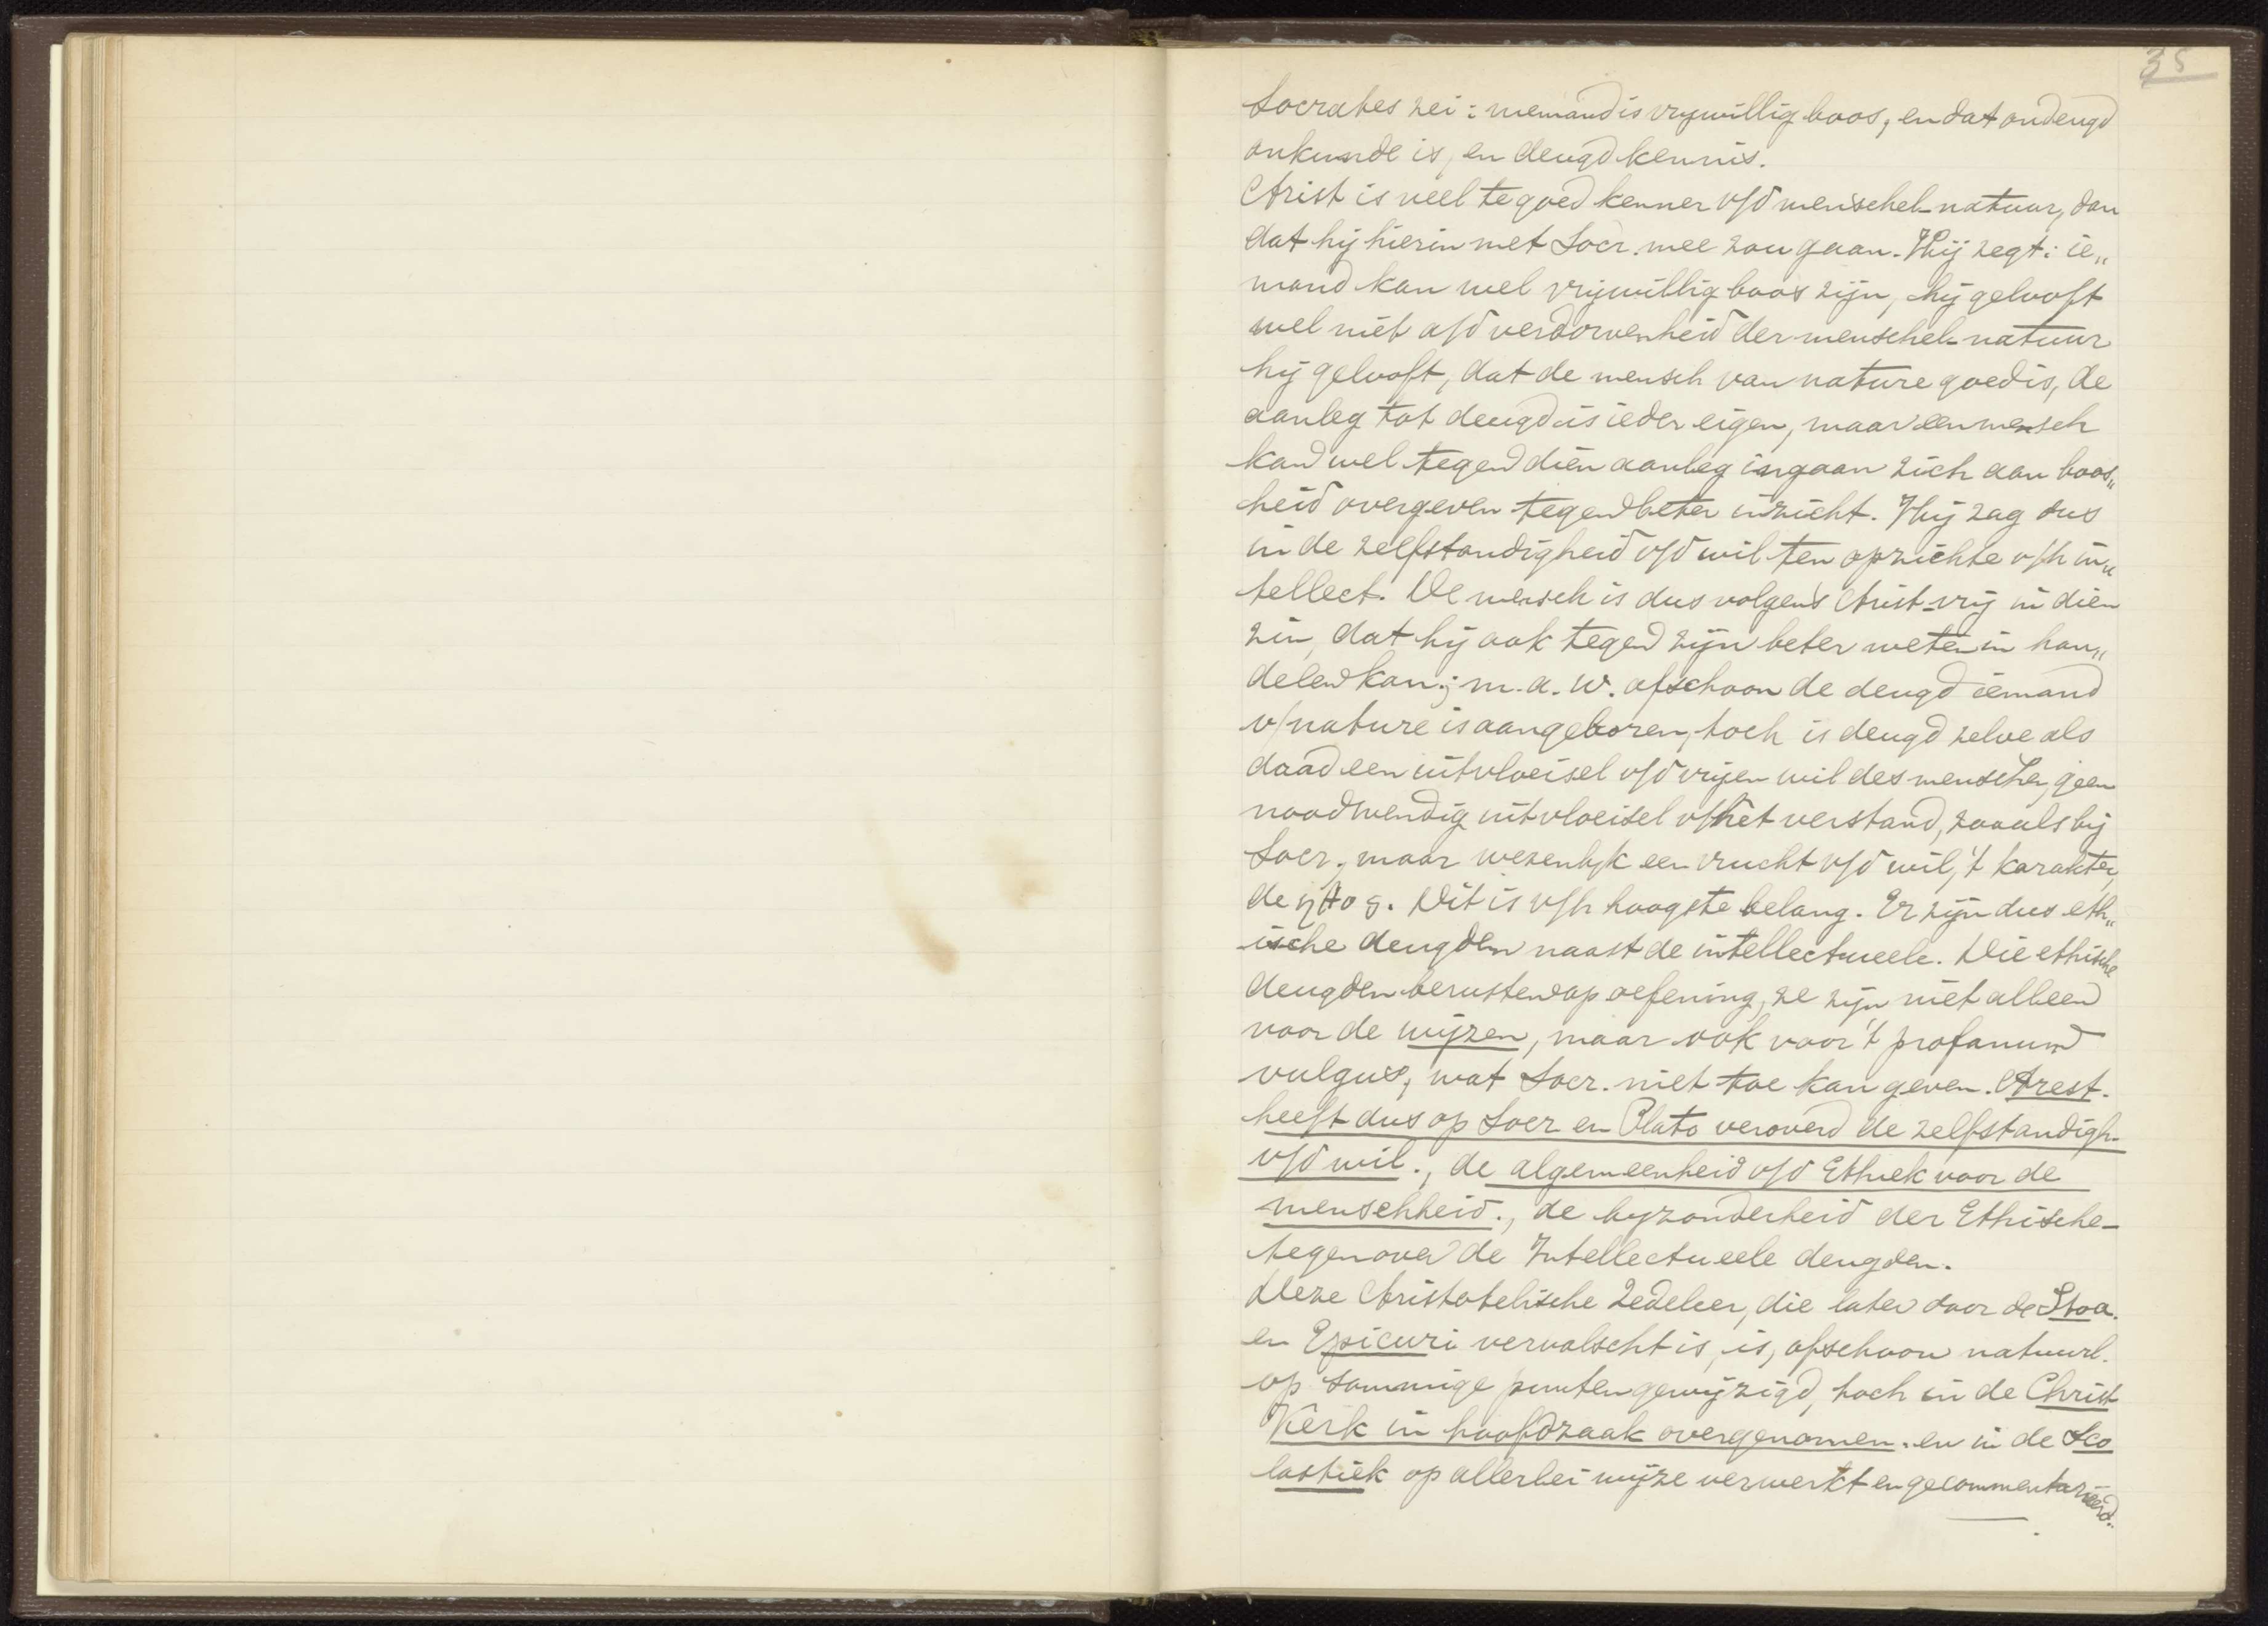 35
Socrates zei: niemand is vrijwillig boos, en dat ondeugd
onkunde is, en deugd kennis.
Arist is veel te goed kenner v/d menschel. natuur, dan
dat hij hierin met Socr. mee zou gaan. Hij zegt: ie„
mand kan wel vrijwillig boos zijn, hij gelooft
wel niet a/d verdorvenheid der menschel. natuur
hij gelooft, dat de mensch van nature goed is, de
aanleg tot deugd is ieder eigen, maar een mensch
kan wel tegen dien aanleg ingaan zich aan boos„
heid overgeven tegen beter inzicht. Hij zag dus
in de zelfstandigheid v/d wil ten opzichte v/h in„
tellect. De mensch is dus volgens Arist. vrij in dien
zin, dat hij ook tegen zijn beter weten in han„
delen kan; m.a.w. ofschoon de deugd iemand
v/nature is aangeboren, toch is deugd zelve als
daad een uitvloeisel v/d vrijen wil des menschen, geen
noodwendig uitvloeisel v/het verstand, zooals bij
Socr., maar wezenlijk een vrucht v/d wil, 't karakter,
de ηθος. Dit is v/h hoogste belang. Er zijn dus eth„
ische deugden naast de intellectueele. Die ethische
deugden berusten op oefening, ze zijn niet alleen
voor de wijzen, maar ook voor 't profanum
vulgus, wat Socr. niet toe kan geven. Arest.
heeft dus op Socr en Plato veroverd de zelfstandigh.
v/d wil., de algemeenheid v/d Ethiek voor de
menschheid., de byzonderheid der Ethische-
tegenover de Intellectueele deugden.
Deze Aristotelische Zedeleer, die later door de Stoa.
en Epicuri vervalscht is, is, ofschoon natuurl.
op sommige punten gewijzigd, toch in de Christ
Kerk in hoofdzaak overgenomen. en in de Sco
lastiek op allerlei wijze verwerkt en gecommentarieerd.